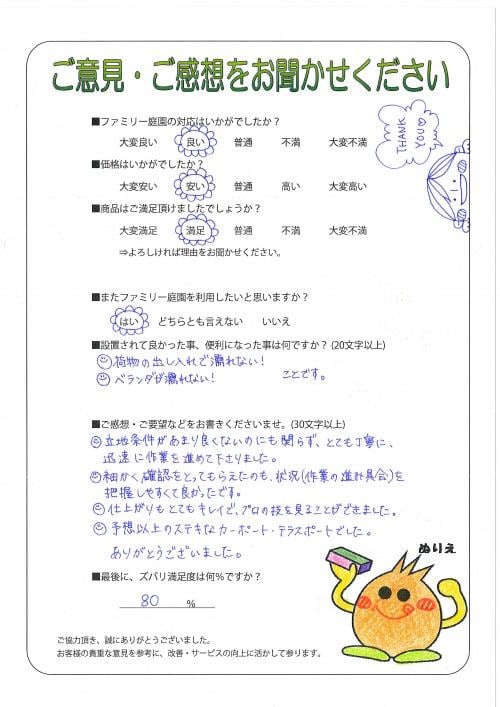 ご意見・ご感想をお聞かせください
■ファミリー庭園の対応はいかがでしたか？
大変良い 良い 普通 不満 大変不満
THANK YOU
■価格はいかがでしたか？
大変安い 安い 普通 高い 大変高い
■商品はご満足頂けましたでしょうか？
大変満足 満足 普通 不満 大変不満
⇒よろしければ理由をお聞かせください。
■またファミリー庭園を利用したいと思いますか？
はい どちらとも言えない いいえ
■設置されて良かった事、便利になった事は何ですか？(20文字以上)
荷物の出し入れで濡れない！
ベランダが濡れない！ ことです。
■ご感想・ご要望などをお書きくださいませ。(30文字以上)
立地条件があまり良くないのにも関らず、とても丁寧に、
迅速に作業を進めて下さりました。
細かく確認をとってもらえたのも、状況(作業の進み具合)を
把握しやすくて良かったです。
仕上がりもとてもキレイで、プロの技を見ることができました。
予想以上のステキなカーポート・テラスポートでした。
ありがとうございました。
ぬりえ
■最後に、ズバリ満足度は何％ですか？
80 %
ご協力頂き、誠にありがとうございました。
お客様の貴重な意見を参考に、改善・サービスの向上に活かして参ります。